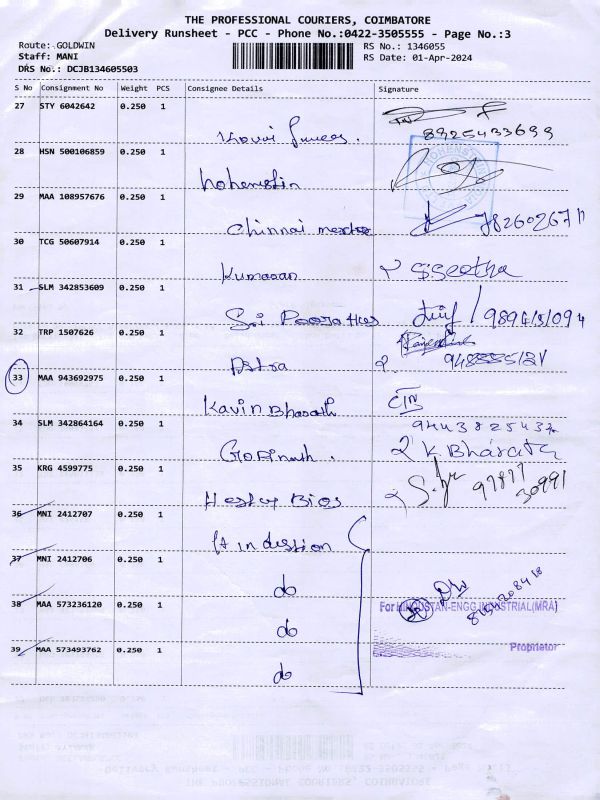 THE PROFESSIONAL COURIERS, COIMBATORE
Delivery Runsheet - PCC - Phone No.:0422-3505555 - Page No.:3
Route: GOLDWIN
RS No.: 1346055
Staff: MANI
RS Date: 01-Apr-2024
DRS No.: DCJB134605503
S No Consignment No Weight PCS Consignee Details Signature
27 STY 6042642 0.250 1
8925433699
28 HSN 500106859 0.250 1
hohenstin
HOHENSTEIN
29 MAA 108957676 0.250 1
Chinnai
30 TCG 50607914 0.250 1
Kumaran SSeetha
31 SLM 342853609 0.250 1
Sri
32 TRP 1507626 0.250 1
Astra
33 MAA 943692975 0.250 1
Kavin Bharath
9443825437
34 SLM 342864164 0.250 1
Gofinath. K. Bharata
35 KRG 4599775 0.250 1
97877
30991
36 MNI 2412707 0.250 1
37 MNI 2412706 0.250 1
do
38 MAA 573236120 0.250 1
For HINDUSTAN-ENGG INDUSTRIAL(MRA)
do
39 MAA 573493762 0.250 1
Proprietor
do